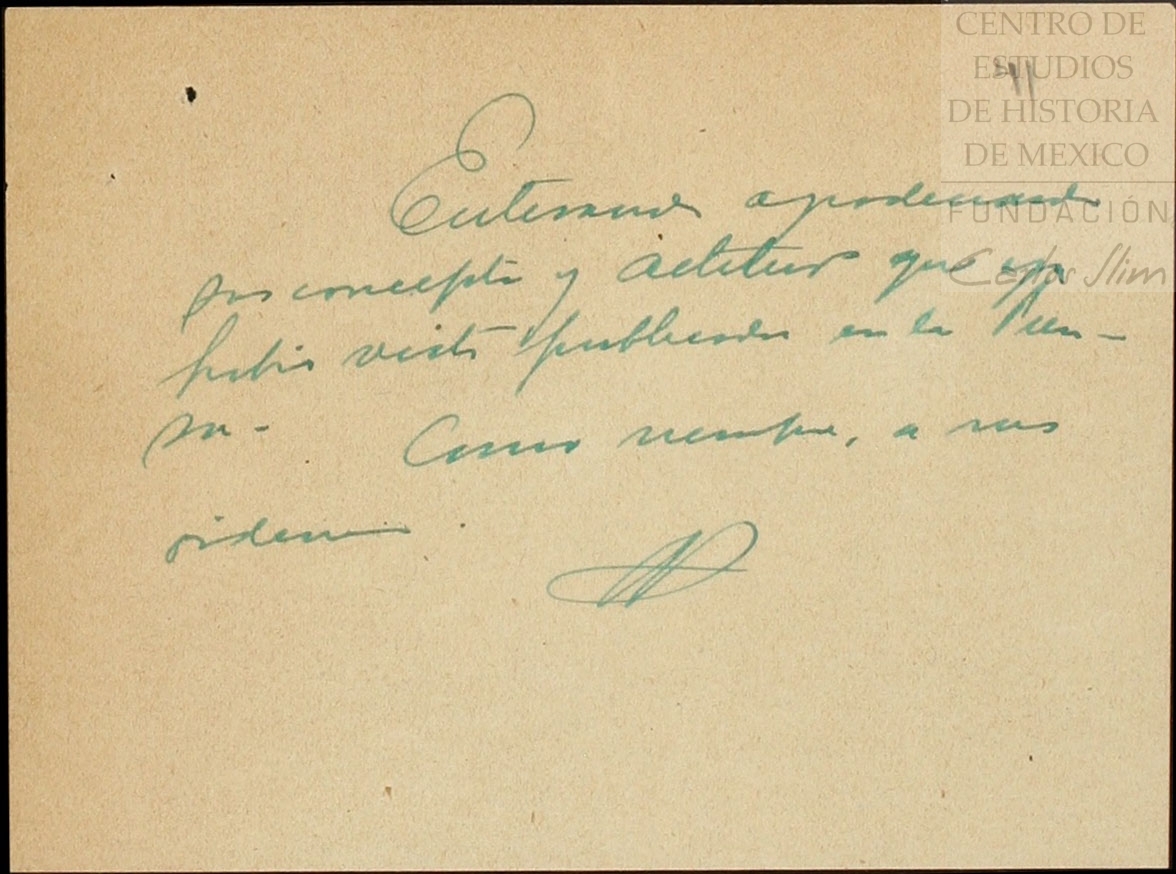 CENTRO DE
ESTUDIOS
DE HISTORIA
DE MEXICO
FUNDACIÓN
Carlos Slim
Enterado agradeciendo
sus conceptos y actitud que ya
había visto publicada en la Pren-
sa.- Como siempre, a sus
órdenes.